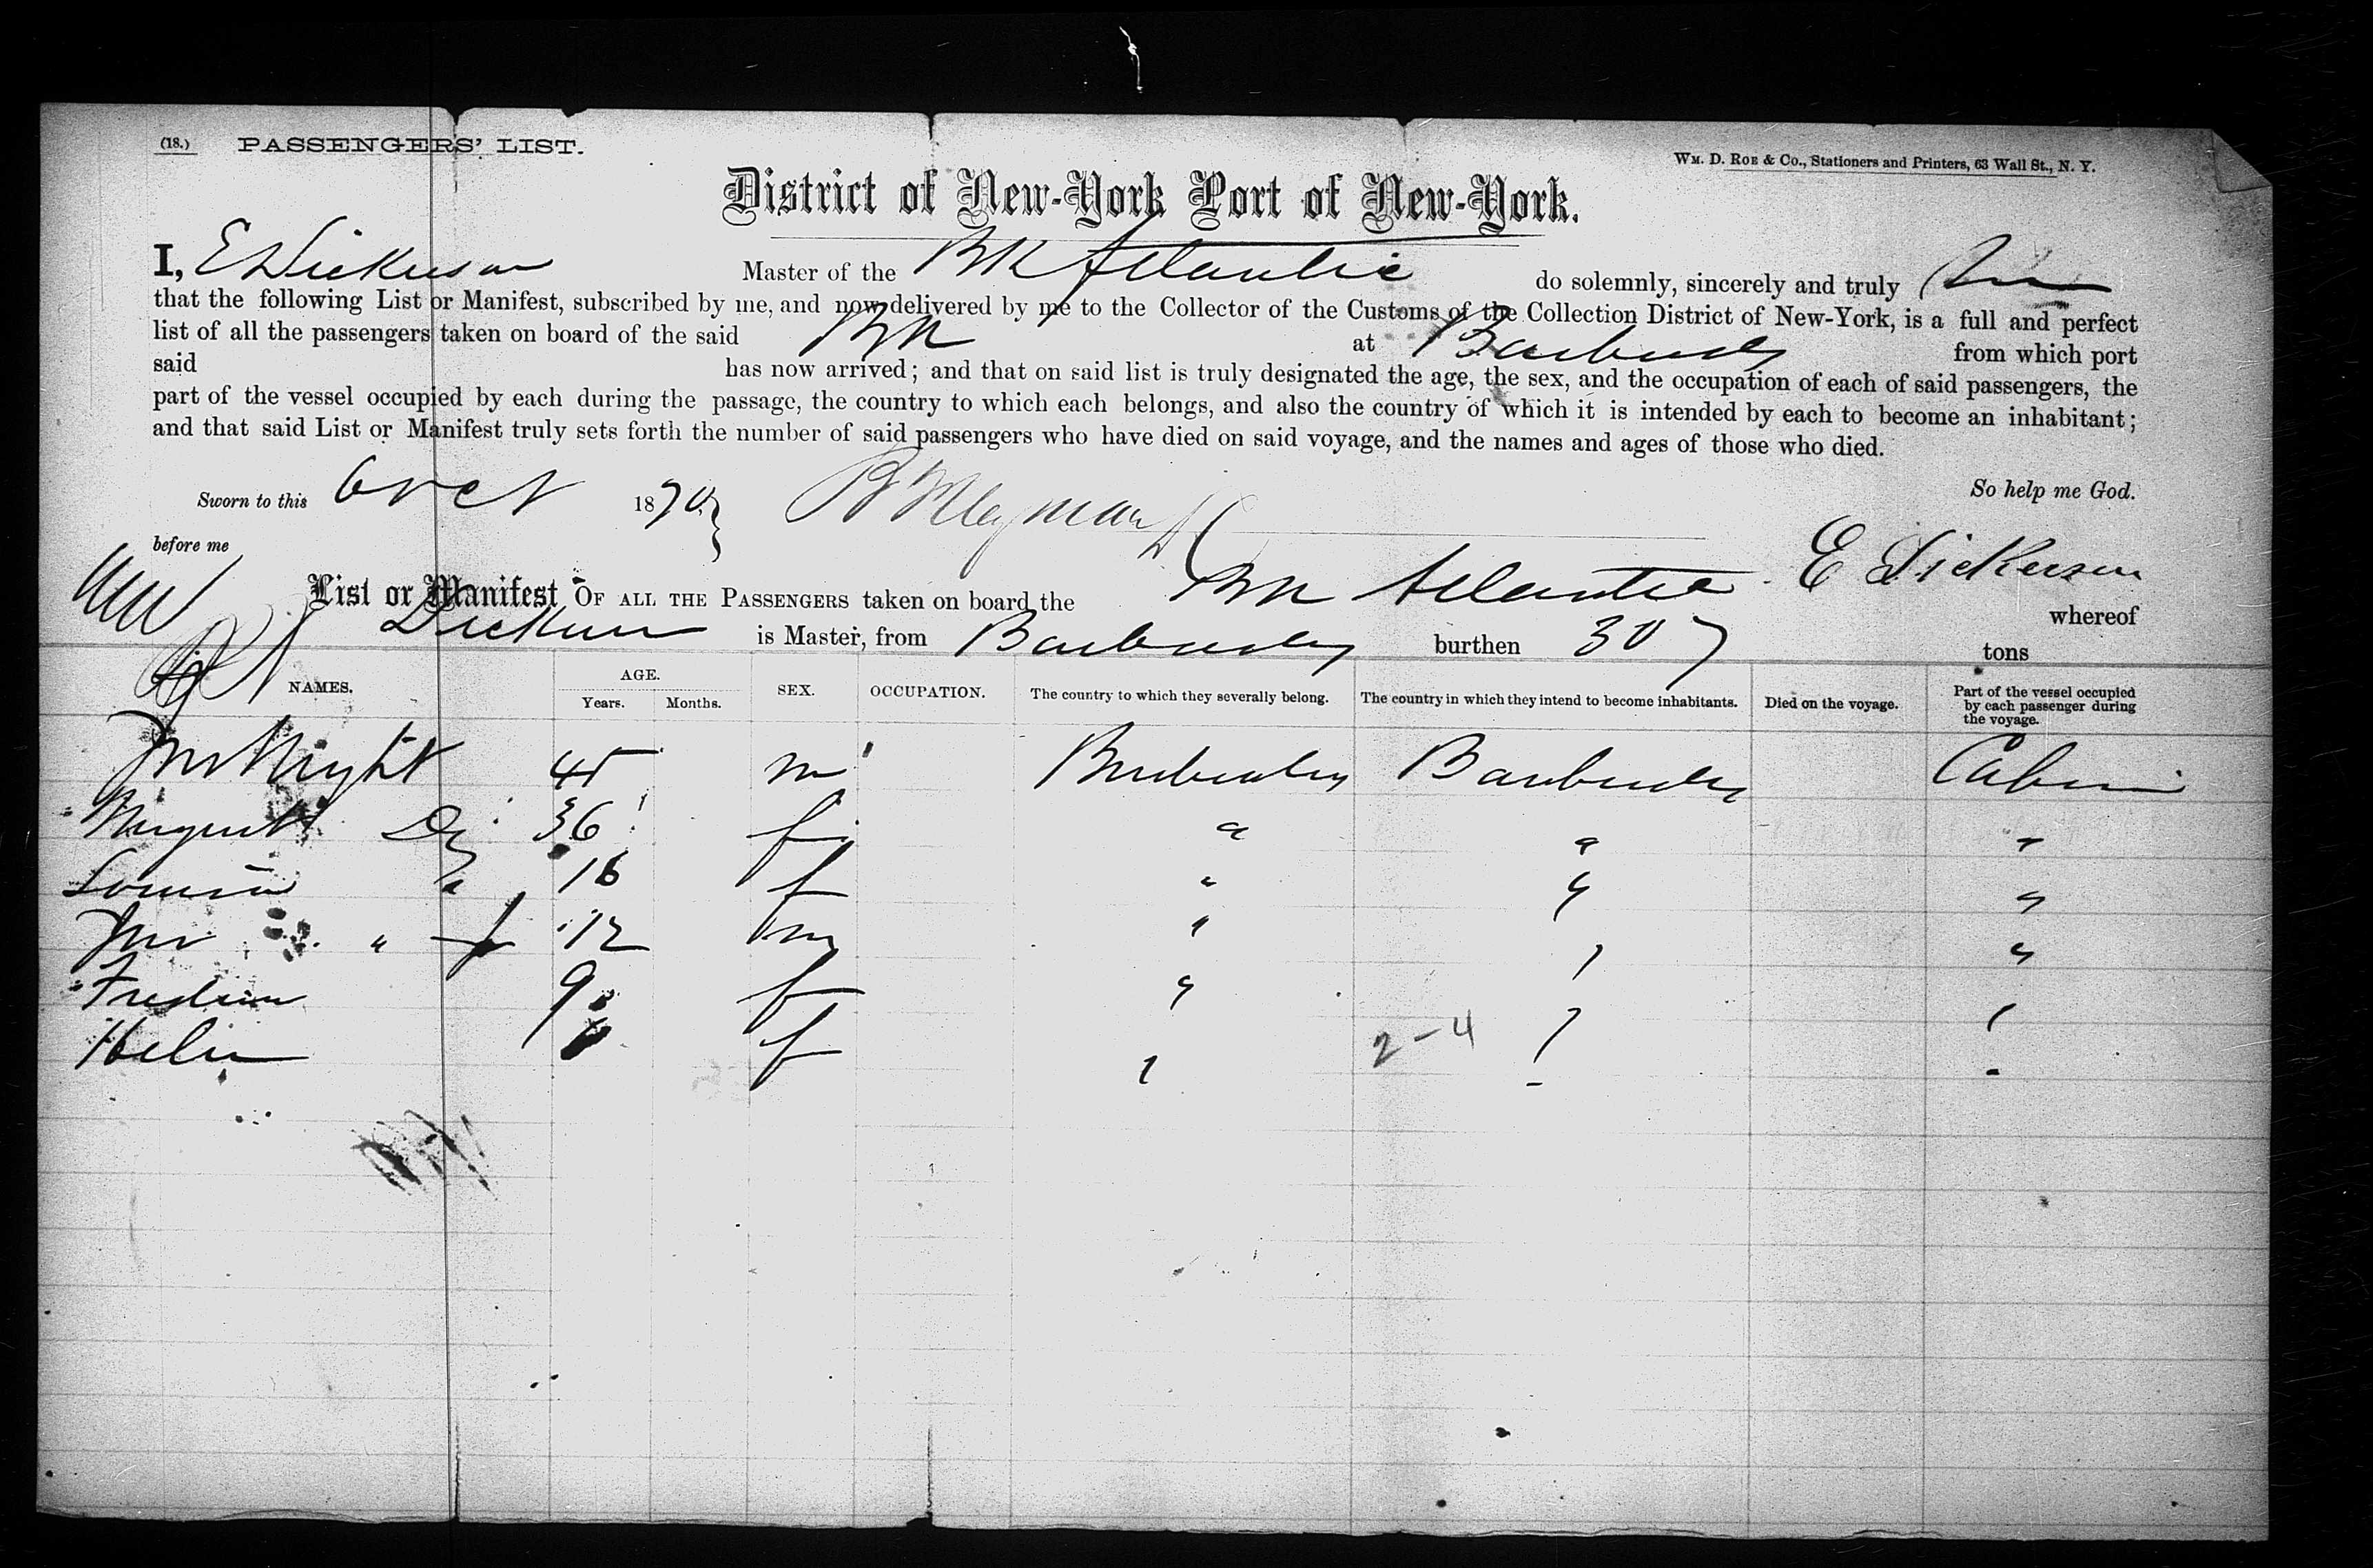 (18.) PASSENGERS' LIST.
WM. D. ROE & Co., Stationers and Printers, 63 Wall St., N. Y.
District of New-York Port of New-York.
I, E Dickerson Master of the Bk Atlantic do solemnly, sincerely and truly
that the following List or Manifest, subscribed by me, and now delivered by me to the Collector of the Customs of the Collection District of New-York, is a full and perfect
list of all the passengers taken on board of the said Bk at Barbados from which port
said has now arrived; and that on said list is truly designated the age, the sex, and the occupation of each of said passengers, the
part of the vessel occupied by each during the passage, the country to which each belongs, and also the country of which it is intended by each to become an inhabitant;
and that said List or Manifest truly sets forth the number of said passengers who have died on said voyage, and the names and ages of those who died.
Sworn to this 6 Oct 1870 So help me God.
before me E Dickerson
List or Manifest OF ALL THE PASSENGERS taken on board the Bk Atlantic whereof
Dickerson is Master, from Barbados burthen 307 tons
NAMES. AGE. Years. Months. SEX. OCCUPATION. The country to which they severally belong. The country in which they intend to become inhabitants. Died on the voyage. Part of the vessel occupied by each passenger during the voyage.
Jno Wright 45 m Barbados Barbados Cabin
Margarett Do 36 f " " "
Louisa " 16 f " " "
Jno " 12 m " " "
9 f " " "
Helen f " 2-4 " "